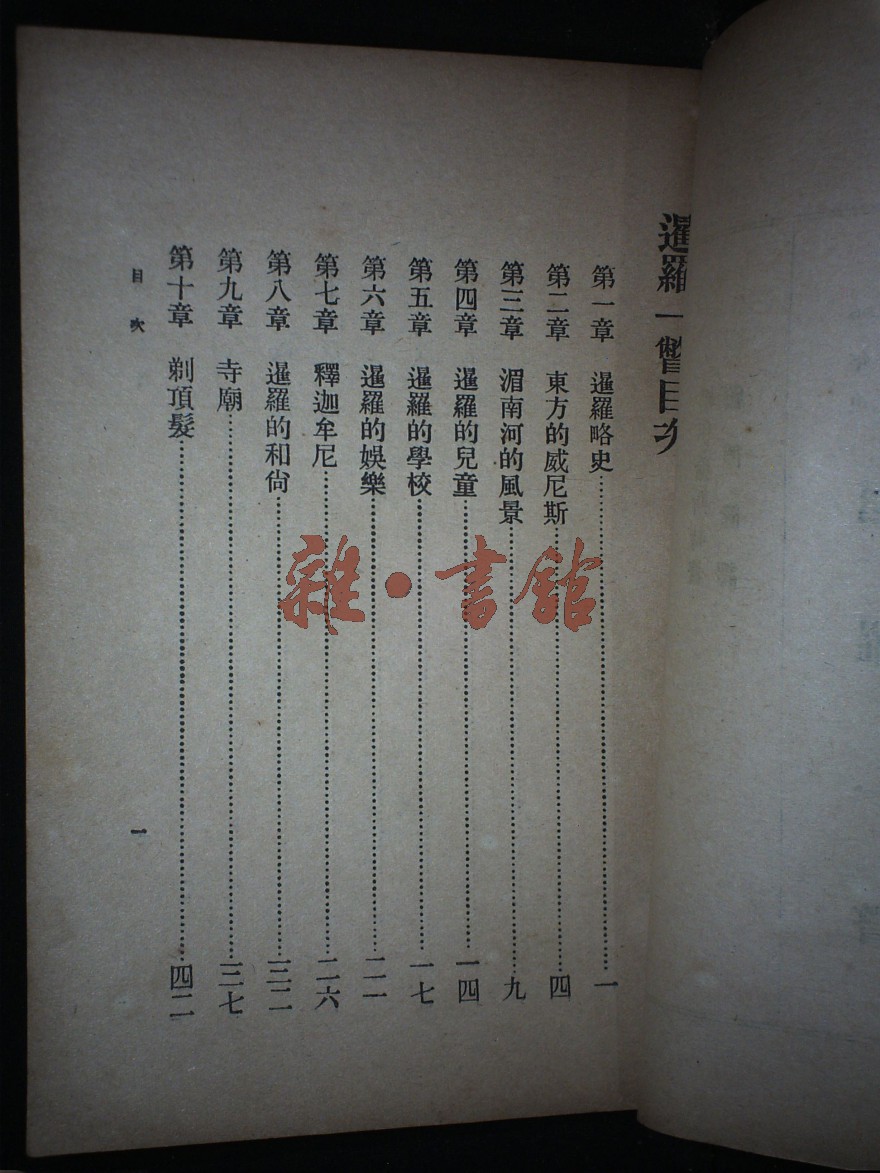 暹羅一瞥目次
第一章 暹羅略史…………一
第二章 東方的威尼斯…………四
第三章 湄南河的風景…………九
第四章 暹羅的兒童…………一四
第五章 暹羅的學校…………一七
第六章 暹羅的娛樂…………二一
第七章 釋迦牟尼…………二六
第八章 暹羅的和尙…………三二
第九章 寺廟…………三七
第十章 剃頂髮…………四二
目次
一
雜·書館